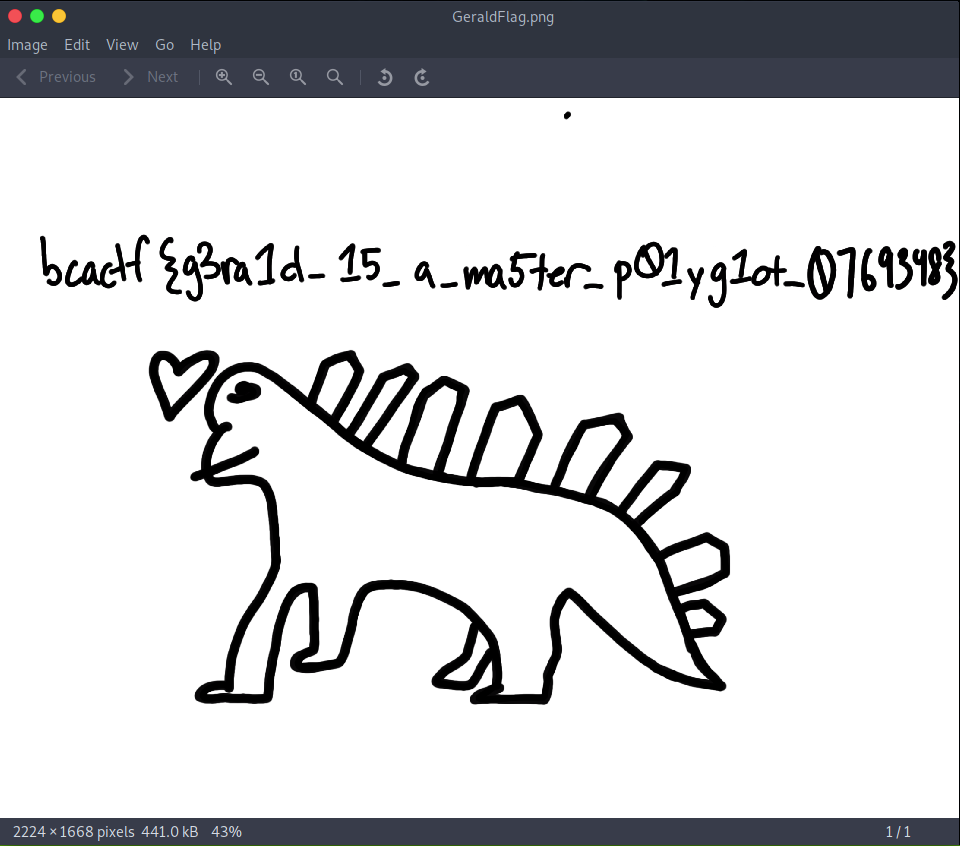 GeraldFlag.png
Image Edit View Go Help
Previous Next
bcactf{g3ra1d_15_a_ma5ter_p01yg1ot_0769348}
2224 × 1668 pixels 441.0 kB 43% 1 / 1